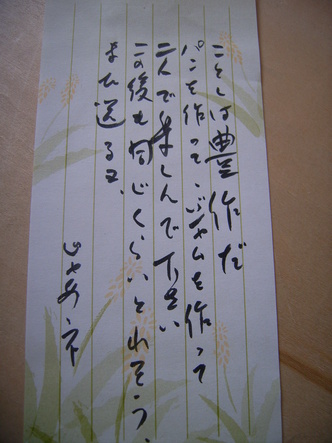 ことしは豊作だ
パンを作って、ジャムを作って
二人で楽しんで下さい
この後も同じくらいとれそう、
また送るヨ、
じゃあ、ネ